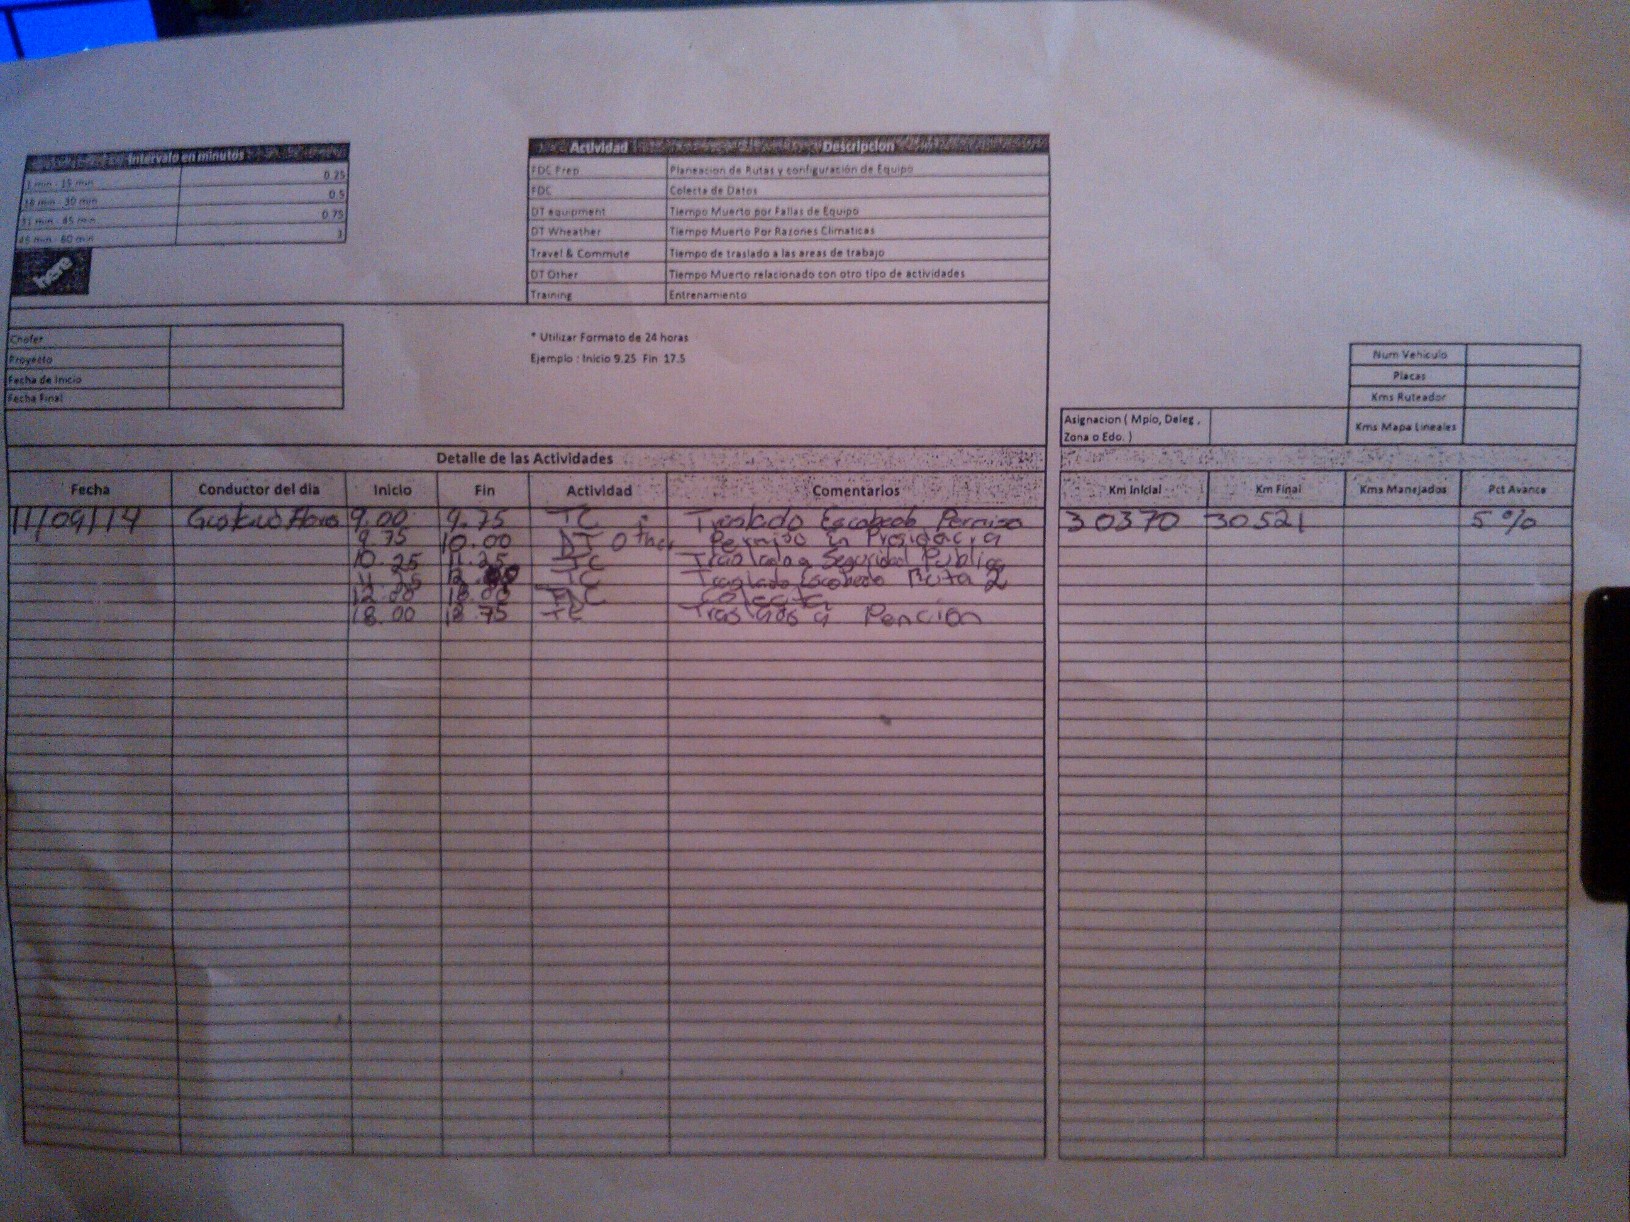 Intervalo en minutos
1 min - 15 min 0.25
16 min - 30 min 0.5
31 min - 45 min 0.75
45 min - 60 min 1
here
Actividad Descripcion
FDC Prep Planeacion de Rutas y configuración de Equipo
FDC Colecta de Datos
DT equipment Tiempo Muerto por Fallas de Equipo
DT Wheather Tiempo Muerto Por Razones Climaticas
Travel & Commute Tiempo de traslado a las areas de trabajo
DT Other Tiempo Muerto relacionado con otro tipo de actividades
Training Entrenamiento
Chofer
Proyecto
Fecha de Inicio
Fecha Final
* Utilizar Formato de 24 horas
Ejemplo : Inicio 9.25 Fin 17.5
Num Vehiculo
Placas
Kms Ruteador
Asignacion ( Mpio, Deleg , Kms Mapa Lineales
Zona o Edo. )
Detalle de las Actividades
Fecha Conductor del dia Inicio Fin Actividad Comentarios Km Inicial Km Final Kms Manejados Pct Avance
11/09/14 Gustavo 9.00 9.75 TC Traslado Escobedo Permiso 30370 30521 5%
9.75 10.00 DT Other Permiso en Presidencia
10.25 11.25 TC Traslado a Seguridad Publica
11.25 12.00 TC Traslado Escobedo Ruta 2
12.00 18.00 Colecta
18.00 18.75 TC Traslado a Pencion